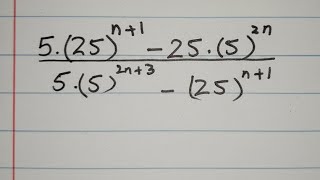 5.(25)^{n+1} - 25.(5)^{2n}
5.(5)^{2n+3} - (25)^{n+1}